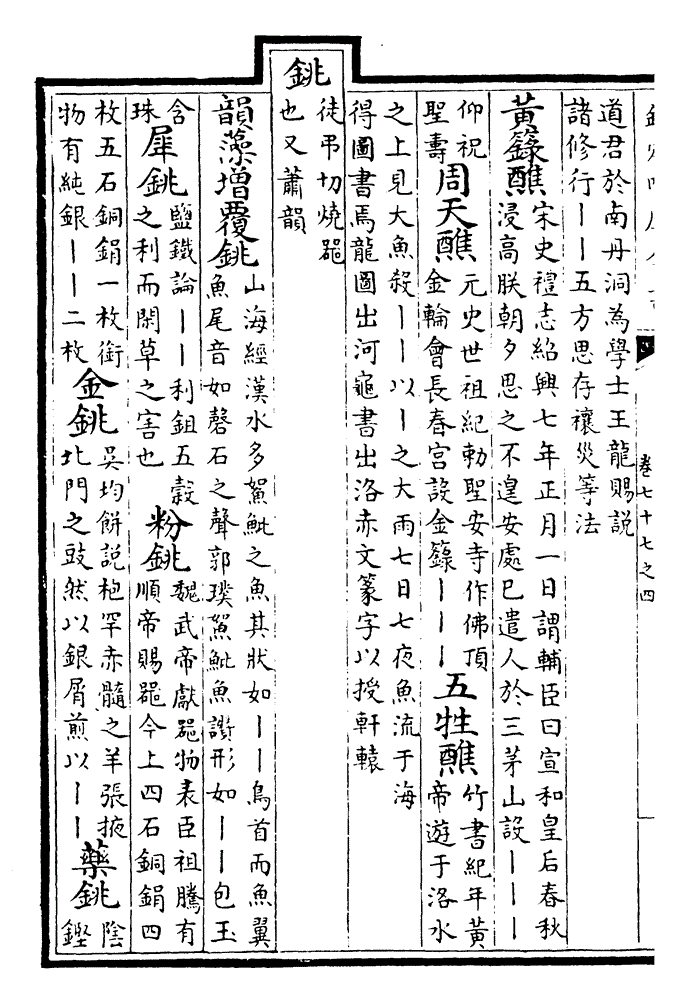 卷七十七之四
道君於南丹洞為學士王龍賜説
諸修行——五方思存禳災等法
黃籙醮
宋史禮志紹興七年正月一日謂輔臣曰宣和皇后春秋
浸高朕朝夕思之不遑安處已遣人於三茅山設———
仰祝
聖壽
周天醮
元史世祖紀勅聖安寺作佛頂
金輪會長春宮設金籙———
五牲醮
竹書紀年黃
帝遊于洛水
之上見大魚殺——以—之大雨七日七夜魚流于海
得圖書焉龍圖出河龜書出洛赤文篆字以授軒轅
銚
徒弔切燒器
也又蕭韻
韻藻增覆銚
山海經漢水多䰽魮之魚其狀如——鳥首而魚翼
魚尾音如磬石之聲郭璞䰽魮魚讃形如——包玉
含
珠
犀銚
鹽鐵論——利鉏五穀
之利而閑草之害也
粉銚
魏武帝獻器物表臣祖騰有
順帝賜器今上四石銅鋗四
枚五石銅鋗一枚銜
物有純銀——二枚
金銚
吳均餅説枹罕赤髓之羊張掖
北門之豉然以銀屑煎以——
藥銚
陰
鏗